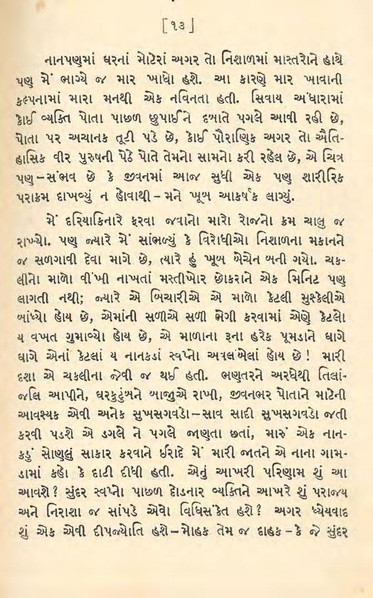 [ ૧૩ ]
નાનપણમાં ઘરનાં મોટેરાં અગર તો નિશાળમાં માસ્તરોને હાથે
પણ મેં ભાગ્યે જ માર ખાધો હશે. આ કારણે માર ખાવાની
કલ્પનામાં મારા મનથી એક નવિનતા હતી. સિવાય અંધારામાં
કોઈ વ્યક્તિ પોતા પાછળ છુપાઈને દબાતે પગલે આવી રહી છે,
પોતા પર અચાનક તૂટી પડે છે, કોઈ પૌરાણિક અગર તો ઐતિ-
હાસિક વીર પુરુષની પેઠે પોતે તેમનો સામનો કરી રહેલ છે, એ ચિત્ર
પણ–સંભવ છે કે જીવનમાં આજ સુધી એક પણ શારીરિક
પરાક્રમ દાખવ્યું ન હોવાથી–મને ખૂબ આકર્ષક લાગ્યું.
મેં દરિયાકિનારે ફરવા જવાનો મારો રોજનો ક્રમ ચાલુ જ
રાખ્યો. પણ જ્યારે મેં સાંભળ્યું કે વિરોધીઓ નિશાળના મકાનને
જ સળગાવી દેવા માગે છે, ત્યારે હું ખૂબ બેચેન બની ગયો. ચક-
લીનો માળો વીંખી નાખતાં મસ્તીખોર છોકરાને એક મિનિટ પણ
લાગતી નથી; જ્યારે એ બિચારીએ એ માળો કેટલી મુશ્કેલીએ
બાંધ્યો હોય છે, એમાંની સળીએ સળી ભેગી કરવામાં એણે કેટલો
ય વખત ગુમાવ્યો હોય છે, એ માળાના રૂના હરેક પૂમડાને ધાગે
ધાગે એનાં કેટલાં ય નાનકડાં સ્વપ્નો અવલંબેલાં હોય છે! મારી
દશા એ ચકલીના જેવી જ થઈ હતી. ભણતરને અરધેથી તિલાં-
જલિ આપીને, ઘરકુટુંબને બાજુએ રાખી, જીવનભર પોતાને માટેની
આવશ્યક એવી અનેક સુખસગવડો–સાવ સાદી સુખસગવડો જતી
કરવી પડશે એ ડગલે ને પગલે જાણતા છતાં, મારું એક નાન-
કડું સોણલું સાકાર કરવાને ઈરાદે મેં મારી જાતને એ નાના ગામ-
ડામાં કહો કે દાટી દીધી હતી. એનું આખરી પરિણામ શું આ
આવશે? સુંદર સ્વપ્નો પાછળ દોડનાર વ્યક્તિને આખરે શું પરાજય
અને નિરાશા જ સાંપડે એવો વિધિસંકેત હશે? અગર ધ્યેયવાદ
શું એક એવી દીપજ્યોતિ હશે–મોહક તેમ જ દાહક–કે જે સુંદર